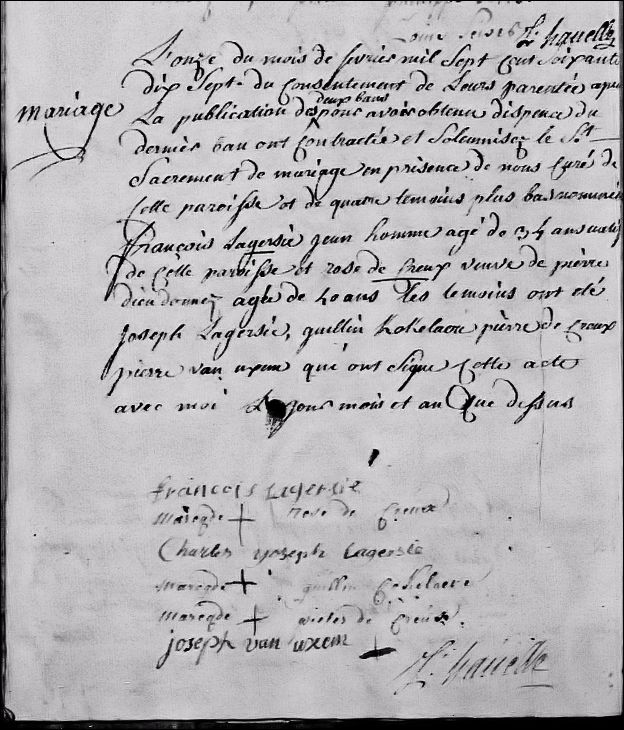 L'onze du mois de fevrié mil sept cent soixante
dix sept du consentement de leurs parentée apré
Mariage
La publication des deux bans nous avoir obtenu dispence du
dernier ban ont contractée et solemniséz le St
Sacrement de mariage en presence de nous curé de
cette paroisse et de quatre temoins plus bas nommés
François Lagersie jeun homme agé de 34 ans natif
de cette paroisse et rose de Creux veuve de pierre
dieudonnez agée de 40 ans les temoins ont eté
joseph Lagersie, guillin kokelaere pierre de Creux
pierre van uxem qui ont signe cette acte
avec moi Les jour mois et an que dessus
françois Lagersie
marcqde + rose de Creux
Charles yoseph Lagersie
marcqde + guillin
marcqde + de Creux
joseph van uxem +